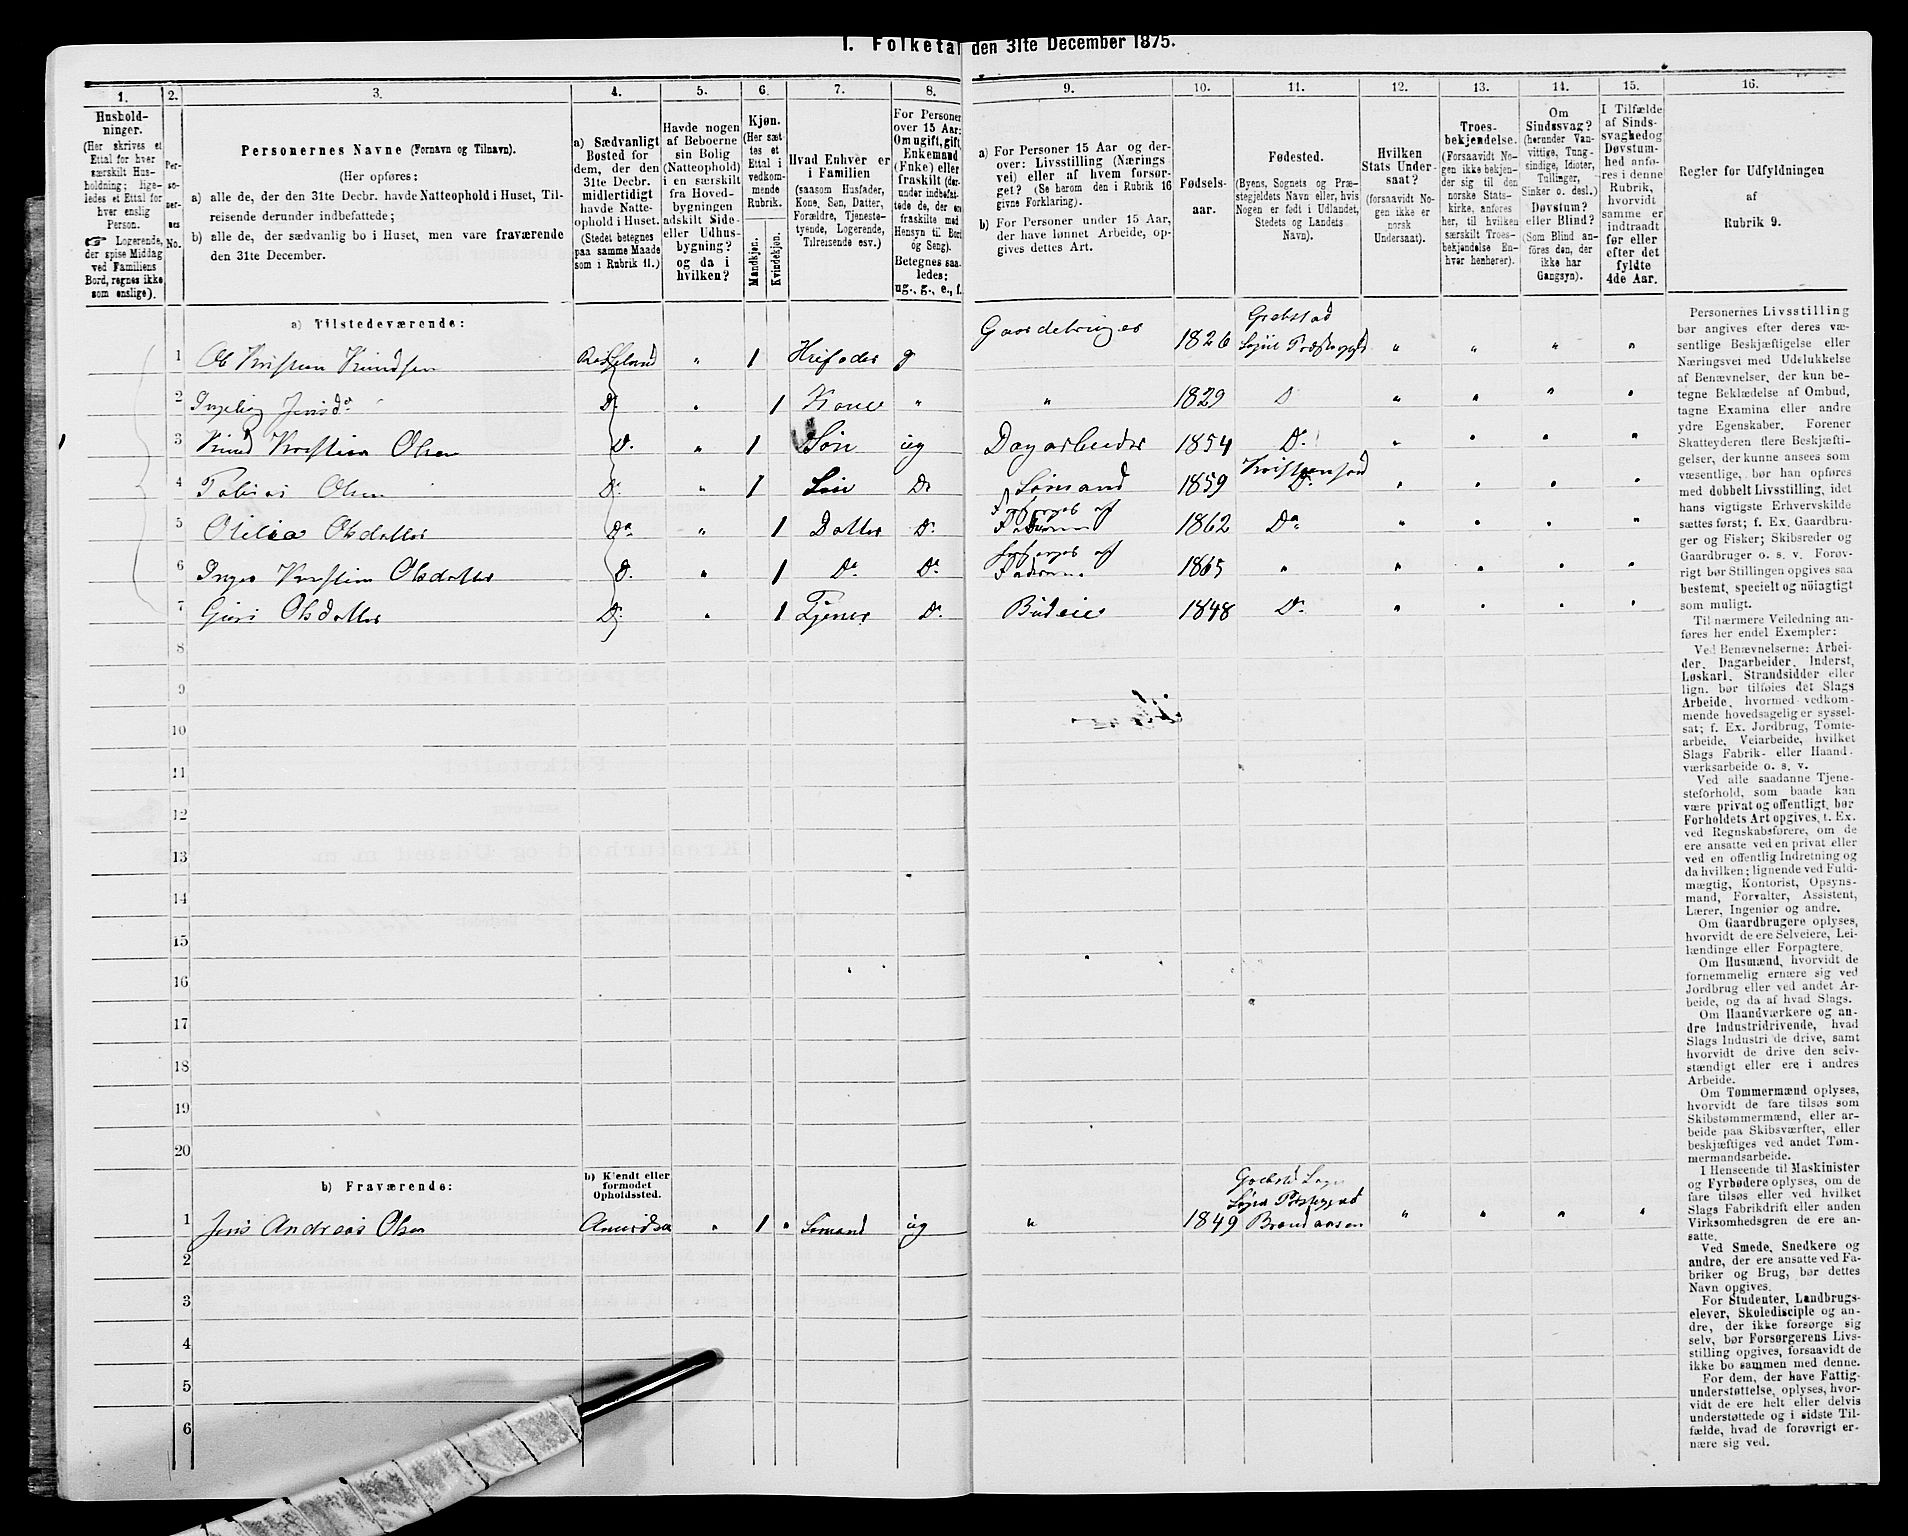 I. Folketal den 31te December 1875.
1.
2.
3.
4.
5.
6.
7.
8.
9.
10.
11.
12.
13.
14.
15.
16.
Hushold-
ninger.
(Her skrives et
Ettal for hver
særskilt Hus-
holdning; lige-
ledes et Ettal for
hver enslig
Person.
☞ Logerende,
der spise Middag
ved Familiens
Bord, regnes ikke
som enslige).
Per-
so-
ner-
nes
No.
Personernes Navne (Fornavn og Tilnavn).
(Her opføres:
a) alle de, der den 31te Decbr. havde Natteophold i Huset, Til-
reisende derunder indbefattede;
b) alle de, der sædvanlig bo i Huset, men vare fraværende
den 31te December.
a) Sædvanligt
Bosted for
dem, der den
31te Decbr.
midlertidigt
havde Natte-
ophold i Huset.
(Stedet betegnes
paa samme Maade
som i Rubrik 11.)
Havde nogen
af Beboerne
sin Bolig
(Natteophold)
i en særskilt
fra Hoved-
bygningen
adskilt Side-
eller Udhus-
bygning?
og da i
hvilken?
Kjøn.
(Her sæt
tes et
Ettal i
vedkom-
mende
Rubrik.
Mandkjøn.
Kvindekjøn.
Hvad Enhver er
i Familien
(saasom Husfader,
Kone, Søn, Datter,
Forældre, Tjeneste-
tyende, Logerende,
Tilreisende osv.)
For Personer
over 15 Aar:
Om ugift, gift,
Enkemand
(Enke) eller
fraskilt (der-
under indbefat-
tede de, der ere
fraskilte med
Hensyn til Bord
og Seng).
Betegnes saa-
ledes:
ug., g., e., f.
a) For Personer 15 Aar og der-
over: Livsstilling (Nærings
vei) eller af hvem forsør-
get? (Se herom den i Rubrik 16
givne Forklaring).
b) For Personer under 15 Aar,
der have lønnet Arbeide, op-
gives dettes Art.
Fødsels-
aar.
Fødested.
(Byens, Sognets og Præ-
stegjeldets Navn eller, hvis
Nogen er født i Udlandet,
Stedets og Landets
Navn).
Hvilken
Stats Under-
saat?
(forsaavidt No-
gen ikke er
norsk
Undersaat).
Troes-
bekjendelse.
(Forsaavidt No-
gen ikke bekjen-
der sig til den
norske Stats-
kirke, anføres
her, til hvilken
særskilt Troes-
bekjendelse En-
hver henhører).
Om
Sindssvag?
(herunder Van-
vittige, Tung-
sindige, Idioter,
Tullinger,
Sinker o. desl.)
Døvstum?
eller Blind?
(Som Blind an-
føres den, der
ikke har
Gangsyn).
I Tilfælde
af Sinds-
svaghed og
Døvstum-
hed anfø-
res i denne
Rubrik,
hvorvidt
samme er
indtraadt
før eller
efter det
fyldte
4de Aar.
Regler for Udfyldningen
af
Rubrik 9.
a) Tilstedeværende:
1 Ol Kristian Knudsen " 1 g Gaardbruger 1826 " " " "
2 Ingeborg Jensd. D. " 1 Kone " " 1829 D " " " "
3 Knud Kristian Olsen D. " 1 Søn ug Dagarbeider 1854 D. " " " "
4 Tobias Olsen D. " 1 Søn Do Sømand 1859 Kristiansand D. " " " "
5 Otilia Olsdatter Do " 1 Datter D. Forsørges af Faderen 1862 Do " " " "
6 Inger Kristine Olsdatter D. " 1 D. D. Forsørges af Faderen 1865 " " " " "
7 Guri Olsdatter D. " 1 Tjener D. Budeie 1848 D. " " " "
8
9
10
11
12
13
14
15
16
17
18
19
20
b) Fraværende:
b) Kjendt eller
formodet
Opholdssted.
1 Jens Andreas Olsen " 1 " Sømand ug " 1849 " " " "
2
3
4
5
6
Personernes Livsstilling
bør angives efter deres væ-
sentlige Beskjæftigelse eller
Næringsvei med Udelukkelse
af Benævnelser, der kun be-
tegne Beklædelse af Ombud,
tagne Examina eller andre
ydre Egenskaber. Forener
Skatteyderen flere Beskjæfti-
gelser, der kunne ansees som
væsentlige, bør han opføres
med dobbelt Livsstilling, idet
hans vigtigste Erhvervskilde
sættes først; f. Ex. Gaardbru-
ger og Fisker; Skibsreder og
Gaardbruger o. s. v. Forøv-
rigt bør Stillingen opgives saa
bestemt, specielt og nöiagtigt
som muligt.
Til nærmere Veiledning an-
føres her endel Exempler:
Ved Benævnelserne: Arbei-
der, Dagarbeider, Inderst,
Løskarl, Strandsidder eller
lign. bør tilføies det Slags
Arbeide, hvormed vedkom-
mende hovedsagelig er syssel-
sat; f. Ex. Jordbrug, Tomte-
arbeide, Veiarbeide, hvilket
Slags Fabrik- eller Haand-
værksarbeide o. s. v.
Ved alle saadanne Tjene-
steforhold, som baade kan
være privat og offentligt, bør
Forholdets Art opgives, t. Ex.
ved Regnskabsførere, om de
ere ansatte ved en privat eller
ved en offentlig Indretning og
da hvilken; lignende ved Fuld-
mægtig, Kontorist, Opsyns-
mand, Forvalter, Assistent,
Lærer, Ingeniør og andre.
Om Gaardbrugere oplyses,
hvorvidt de ere Selveiere, Lei-
lændinge eller Forpagtere.
Om Husmænd, hvorvidt de
fornemmelig ernære sig ved
Jordbrug eller ved andet Ar-
beide, og da af hvad Slags.
Om Haandværkere og an-
dre Industridrivende, hvad
Slags Industri de drive, samt
hvorvidt de drive den selv-
stændigt eller ere i andres
Arbeide.
Om Tømmermænd oplyses,
hvorvidt de fare tilsøs som
Skibstømmermænd, eller ar-
beide paa Skibsværfter, eller
beskjæftiges ved andet Tøm-
mermandsarbeide.
I Henseende til Maskinister
og Fyrbødere oplyses, om de
fare tilsøs eller ved hvilket
Slags Fabrikdrift eller anden
Virksomhedsgren de ere an-
satte.
Ved Smede, Snedkere og
andre, der ere ansatte ved Fa-
briker og Brug, bør dettes
Navn opgives.
For Studenter, Landbrugs-
elever, Skoledisciple og an-
dre, der ikke forsørge sig
selv, bør Forsørgerens Livs-
stilling opgives, forsaavidt de
ikke bo sammen med denne.
For dem, der have Fattig-
understøttelse, oplyses, hvor-
vidt de ere helt eller delvis
understøttede og i sidste Til-
fælde, hvad de forøvrigt er-
nære sig ved.